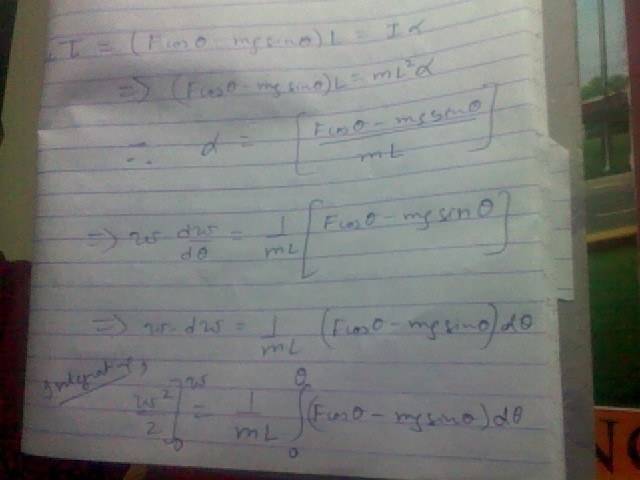 τ = (Fcosθ - mgsinθ)L = Iα
⇒ (Fcosθ - mgsinθ)L = mL²α
∴ α = [Fcosθ - mgsinθ / mL]
⇒ w dw/dθ = 1/mL [Fcosθ - mgsinθ]
⇒ w dw = 1/mL (Fcosθ - mgsinθ)dθ
Integrating,
w²/2 ]₀ʷ = 1/mL ∫₀^θ (Fcosθ - mgsinθ)dθ